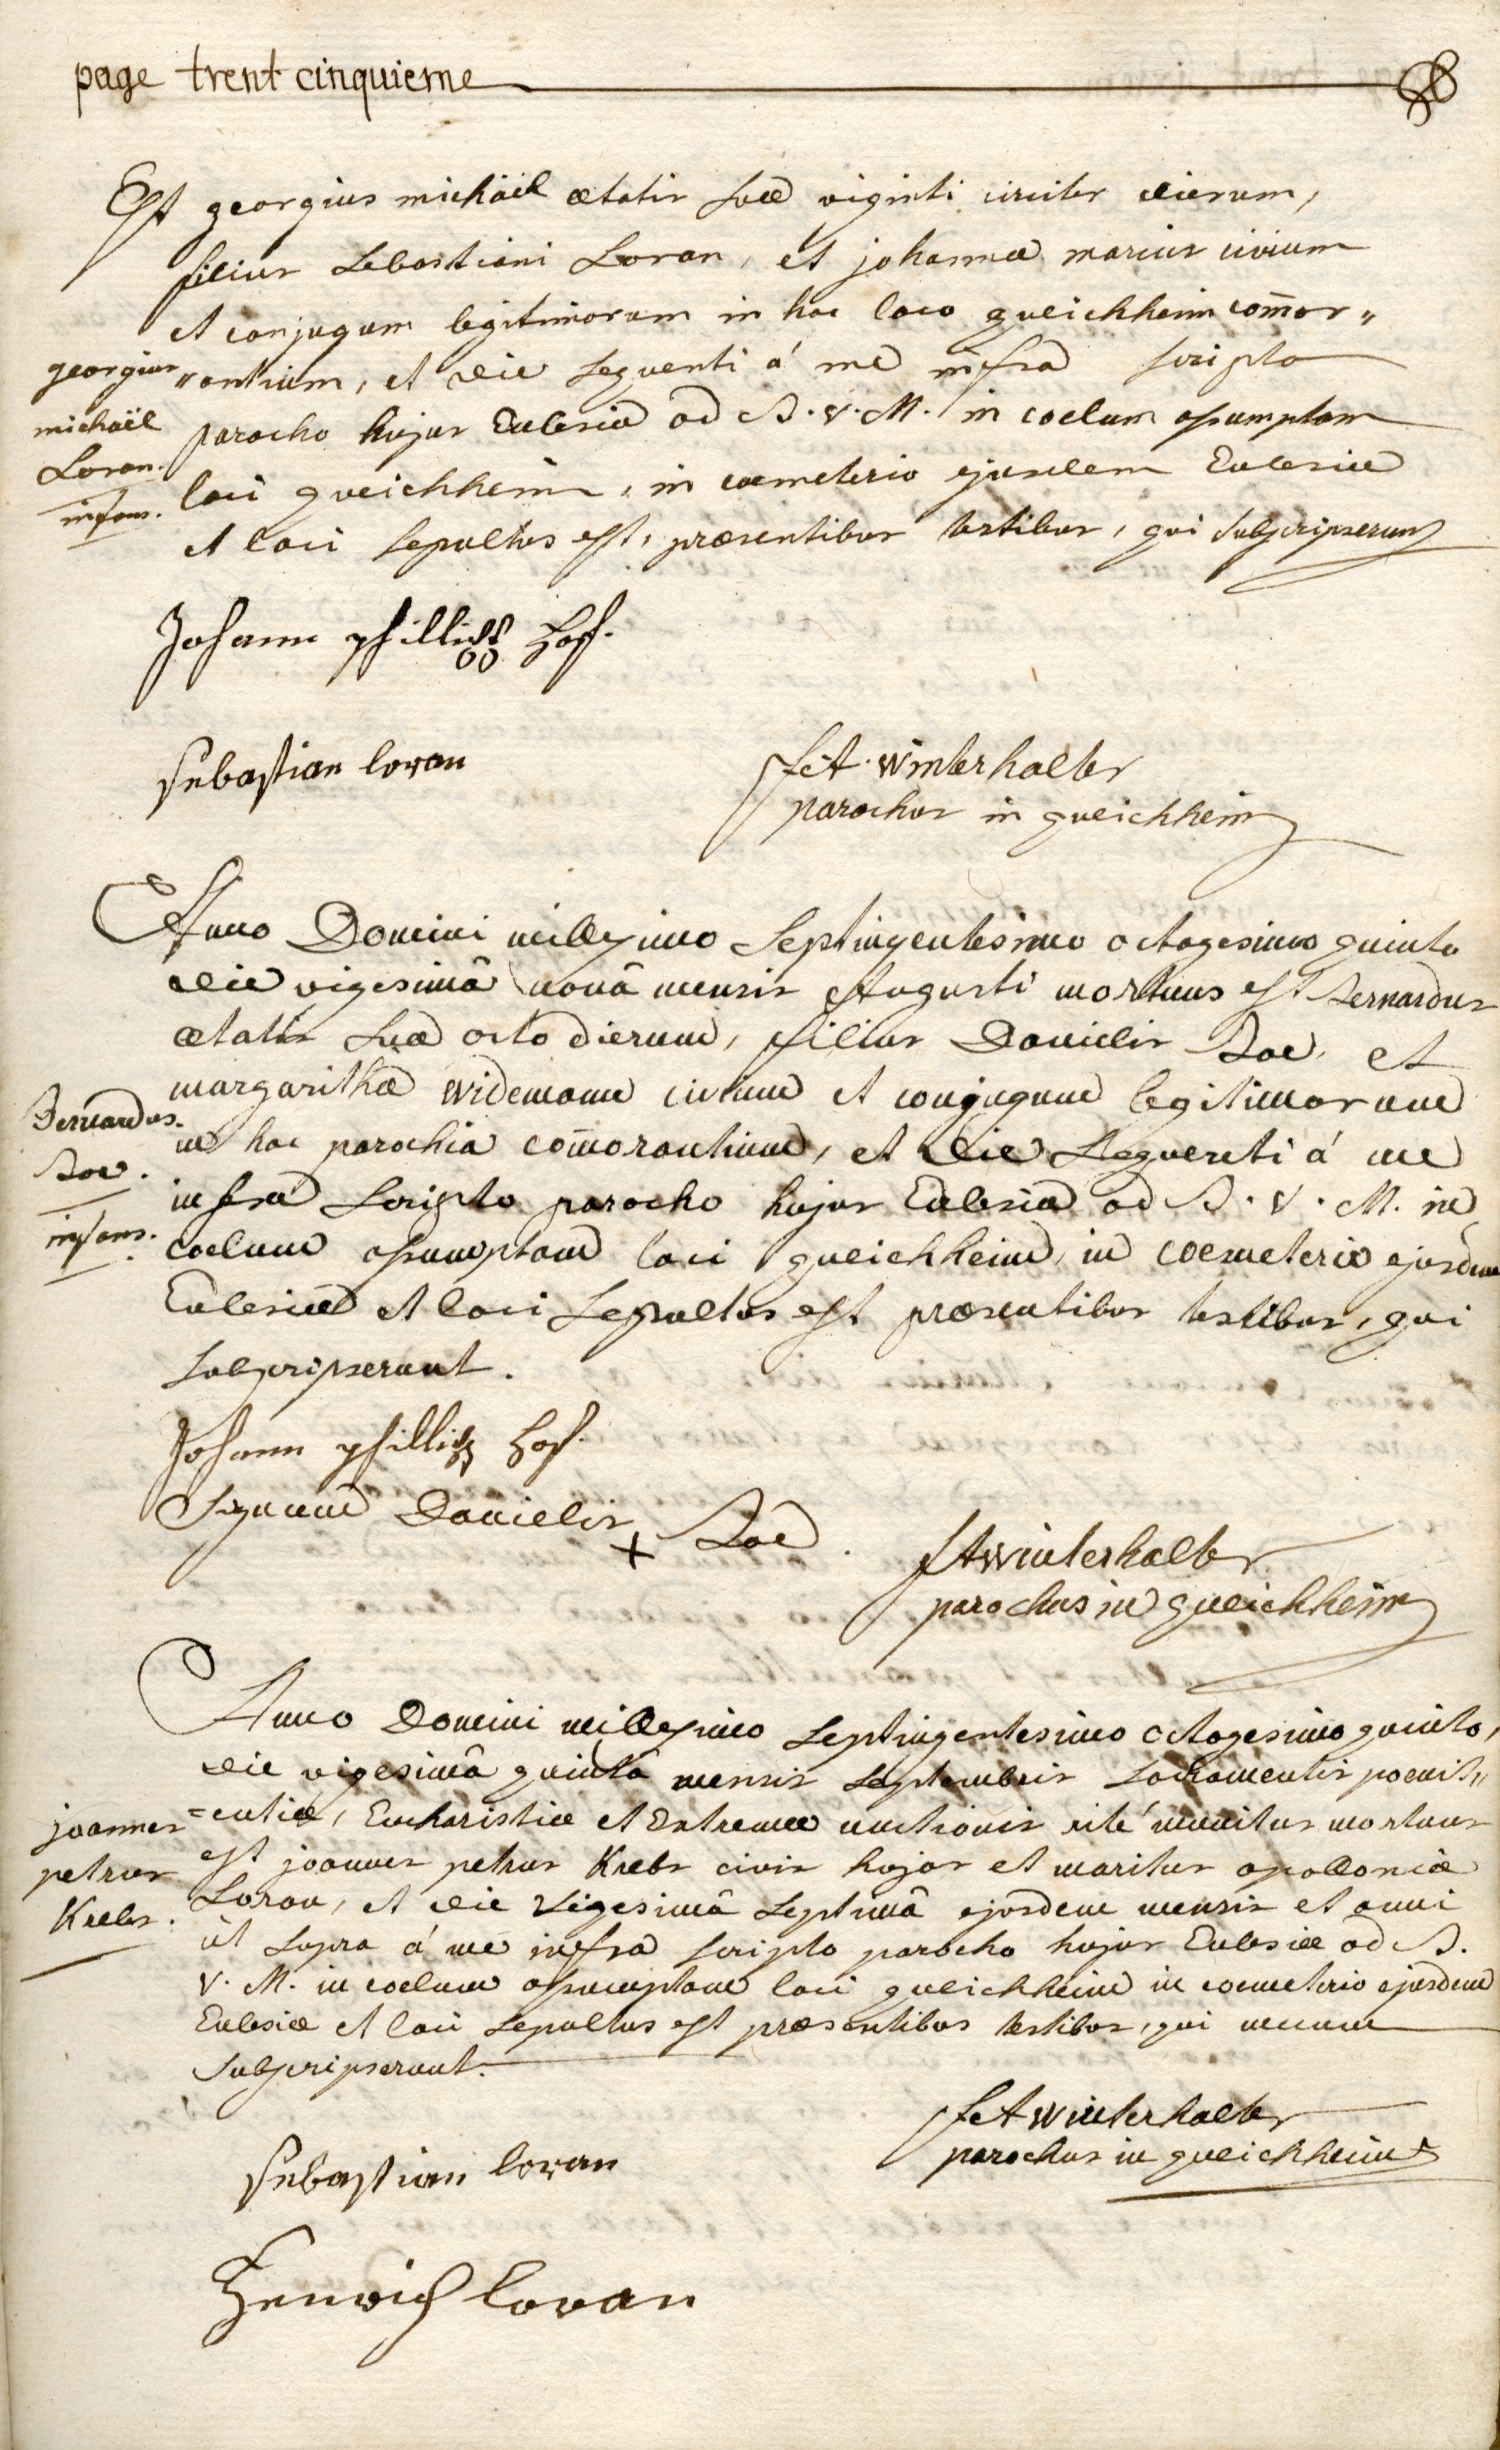 page trent cinquieme
Est georgius michaël ætatis suæ viginti circiter dierum,
filius Sebastiani Loran, et johannæ marius civium
et conjugum legitimorum in hoc loco gueichheim com̄or„
georgius
„antium, et die sequenti á me infra scripto
michaël
parocho hujus Ecclesiæ ad B. V. M. in coelum assumptam
Loran.
loci gueichheim, in coemeterio ejusdem Ecclesiæ
infans.
et loci sepultus est, præsentibus testibus, qui subscripserunt
Johann phillipp Hoff.
Sebastian loran
F et A. winterhalter
parochus in gueichheim
Anno Domini millesimo septingentesimo octogesimo quinto
die vigesimâ nonâ mensis Augusti mortuus est Bernardus
ætatis suæ octo dierum, filius Danielis Boe, et
margarithæ widemann civium et conjugum legitimorum
Bernardus.
in hac parochia com̄orantium, et die sequenti á me
Boe.
infra scripto parocho hujus Ecclesiæ ad B. V. M. in
infans.
coelum assumptam loci gueichheim, in coemeterio ejusdem
Ecclesiæ et loci sepultus est præsentibus testibus, qui
subscripserunt.
Johann phillipp Hoff.
Signum Danielis + Boe.
F A winterhalter
parochus in gueichheim
Anno Domini millesimo septingentesimo octogesimo quinto,
die vigesimâ quintâ mensis septembris sacramentis poenit„
joannes
=entiæ, Eucharistiæ et Extremæ unctionis rité munitus mortuus
petrus
est joannes petrus Krebs civis hujas et maritus apolloniæ
Krebs.
Loran, et die vigesimâ septimâ ejusdem mensis et anni
út supra á me infra scripto parocho hujus Ecclesiæ ad B.
V. M. in coelum assumptam loci gueichheim in coemeterio ejusdem
Ecclesiæ et loci sepultus est præsentibus testibus, qui mecum
subscripserunt.
F et A winterhalter
parochus in gueichheim
Sebastian loran
Henrich loran